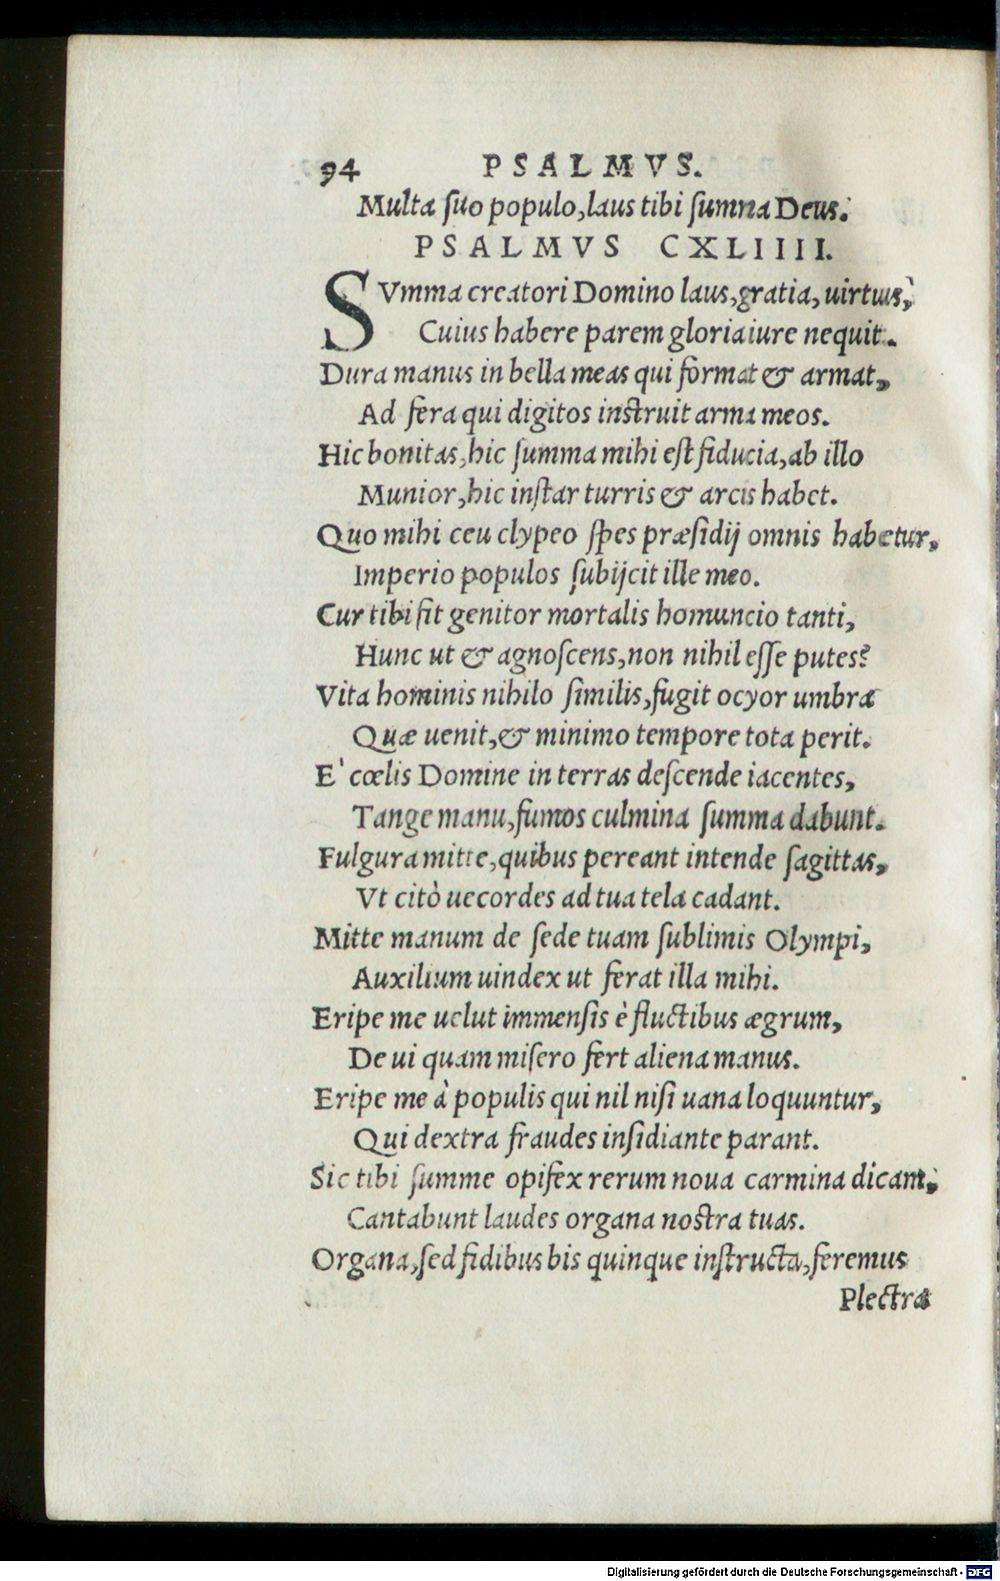 94 PSALMVS.
Multa ſuo populo, laus tibi ſumma Deus.
PSALMVS CXLIIII.
SVmma creatori Domino laus, gratia, uirtus,
Cuius habere parem gloria iure nequit.
Dura manus in bella meas qui format & armat,
Ad fera qui digitos inſtruit arma meos.
Hic bonitas, hic ſumma mihi eſt fiducia, ab illo
Munior, hic inſtar turris & arcis habet.
Quo mihi ceu clypeo ſpes præſidij omnis habetur,
Imperio populos ſubijcit ille meo.
Cur tibi ſit genitor mortalis homuncio tanti,
Hunc ut & agnoſcens, non nihil eſſe putes?
Vita hominis nihilo ſimilis, fugit ocyor umbra
Quæ uenit, & minimo tempore tota perit.
E' cœlis Domine in terras deſcende iacentes,
Tange manu, fumos culmina ſumma dabunt.
Fulgura mitte, quibus pereant intende ſagittas,
Vt citò uecordes ad tua tela cadant.
Mitte manum de ſede tuam ſublimis Olympi,
Auxilium uindex ut ferat illa mihi.
Eripe me uelut immenſis è fluctibus ægrum,
De ui quam miſero fert aliena manus.
Eripe me à populis qui nil niſi uana loquuntur,
Qui dextra fraudes inſidiante parant.
Sic tibi ſumme opifex rerum noua carmina dicam,
Cantabunt laudes organa noſtra tuas.
Organa, ſed fidibus bis quinque inſtructa, feremus
Plectra
Digitalisierung gefördert durch die Deutsche Forschungsgemeinschaft - DFG